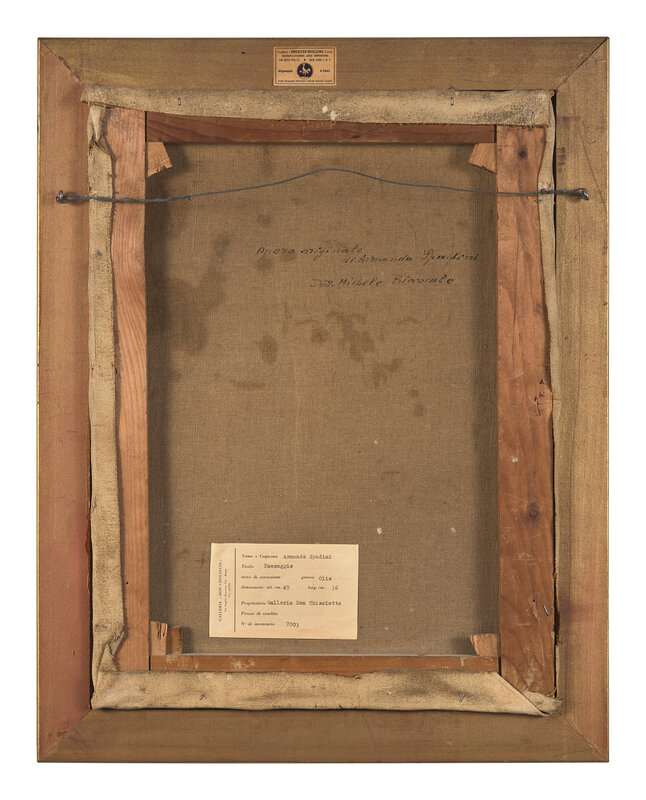 AMERICAN MOULDING Corp.
MANUFACTURERS AND IMPORTERS
NEW YORK
Opera originale
di Armando Spadini
Dott. Michele Biancale
GALLERIA "DON CHISCIOTTE"
Nome e Cognome Armando Spadini
Titolo Paesaggio
anno di esecuzione genere Olio
dimensioni: alt. cm. 49 larg. cm. 36
Proprietario Galleria Don Chisciotte
Prezzo di vendita
N° di inventario 7003